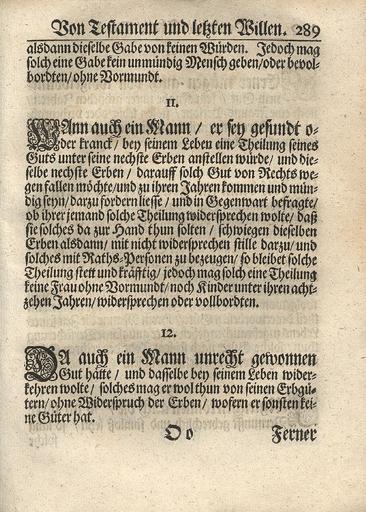 Von Testament und letzten Willen. 289
alsdann dieselbe Gabe von keinen Würden. Jedoch mag
solch eine Gabe kein unmündig Mensch geben/oder bevol-
bordten/ohne Vormundt.
11.
WAnn auch ein Mann / er sey gesundt o-
der kranck/ bey seinem Leben eine Theilung seines
Guts unter seine nechste Erben anstellen würde/ und die-
selbe nechste Erben / darauff solch Gut von Rechts we-
gen fallen möchte/und zu ihren Jahren kommen und mün-
dig seyn/darzu fordern liesse / und in Gegenwart befragte/
ob ihrer jemand solche Theilung widersprechen wolte/ daß
sie solches da zur Hand thun solten / schwiegen dieselben
Erben alsdann/ mit nicht widersprechen stille darzu/ und
solches mit Raths-Personen zu bezeugen/ so bleibet solche
Theilung stett und kräfftig/ jedoch mag solch eine Theilung
keine Frau ohne Vormundt/ noch Kinder unter ihren acht-
zehen Jahren/ widersprechen oder vollbordten.
12.
DA auch ein Mann unrecht gewonnen
Gut hätte / und dasselbe bey seinem Leben wider-
kehren wolte / solches mag er wol thun von seinen Erbgü-
tern/ohne Widerspruch der Erben/ wofern er sonsten kei-
ne Güter hat.
Oo Ferner